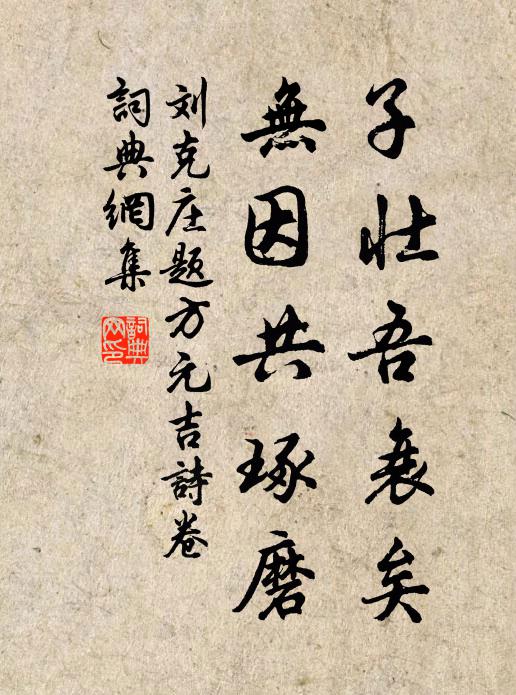 子壮吾衰矣
無因共琢磨
刘克庄题方元吉詩卷
詞典網集
詞典網印